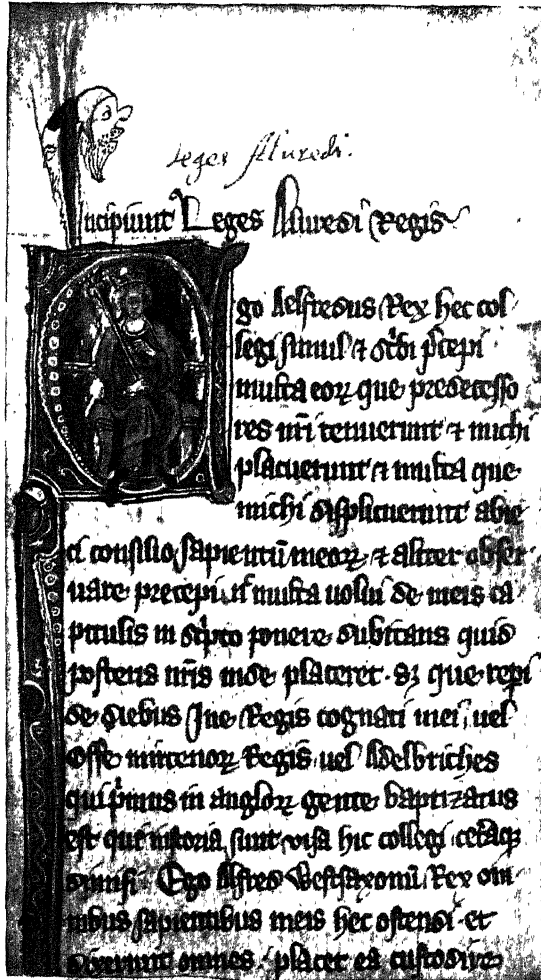 Leges Aluredi.
Incipiunt Leges Aluredi Regis
Ego Aelfredus Rex hec col
legi simul ⁊ sc'bi p'cepi
multa eoꝝ que predecesso
res nr̄i tenuerunt ⁊ michi
placuerunt ⁊ multa que
michi displicuerunt abie
ci consilio sapientū meoꝝ ⁊ aliter obser
uare precepi, multa uolui de meis ca
pitulis in sc'pto ponere dubitans quid
posteris nr̄is inde placeret. sꝫ que rep̄i
de diebus Ine Regis cognati mei, uel
Offe mircenoꝝ Regis uel Adelbriches
qui p'mus in angloꝝ gente baptizatus
est que sunt visa hic collegi cet̄aqꝫ
dimisi. Ego Alfred Westsaxonū Rex om
nibus sapientibus meis hec ostendi et
dixerunt omnes placet ea custodire